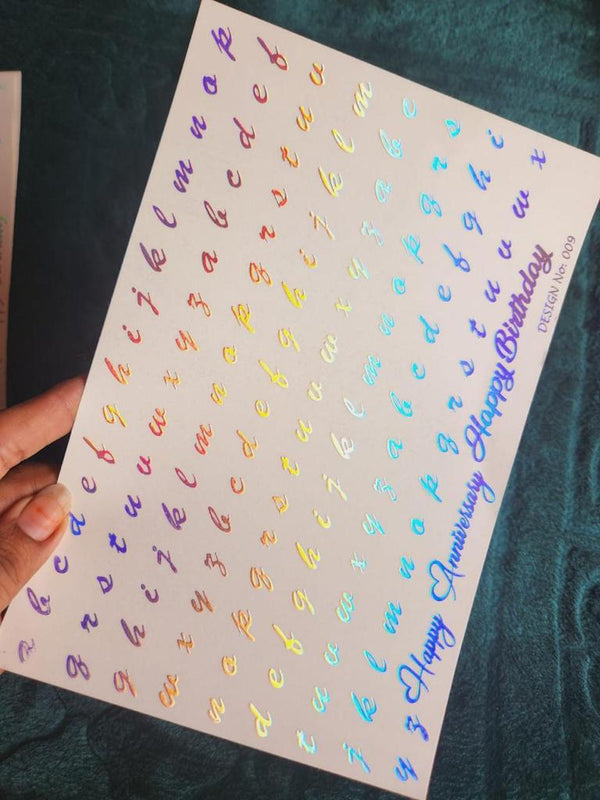 a b c d e f g h i j k l m n o p
q r s t u v w x y z a b c d e f
g h i j k l m n o p q r s t u v
w x y z b c d e f g h i j k l m
n o p q r s t u v w x y z a b c
d e f g h i j k l m n o p q r s
t u v w x y z a b c d e f g h i
j k l m n o p q r s t u v w x
y z Happy Anniversary Happy Birthday
DESIGN No: 009